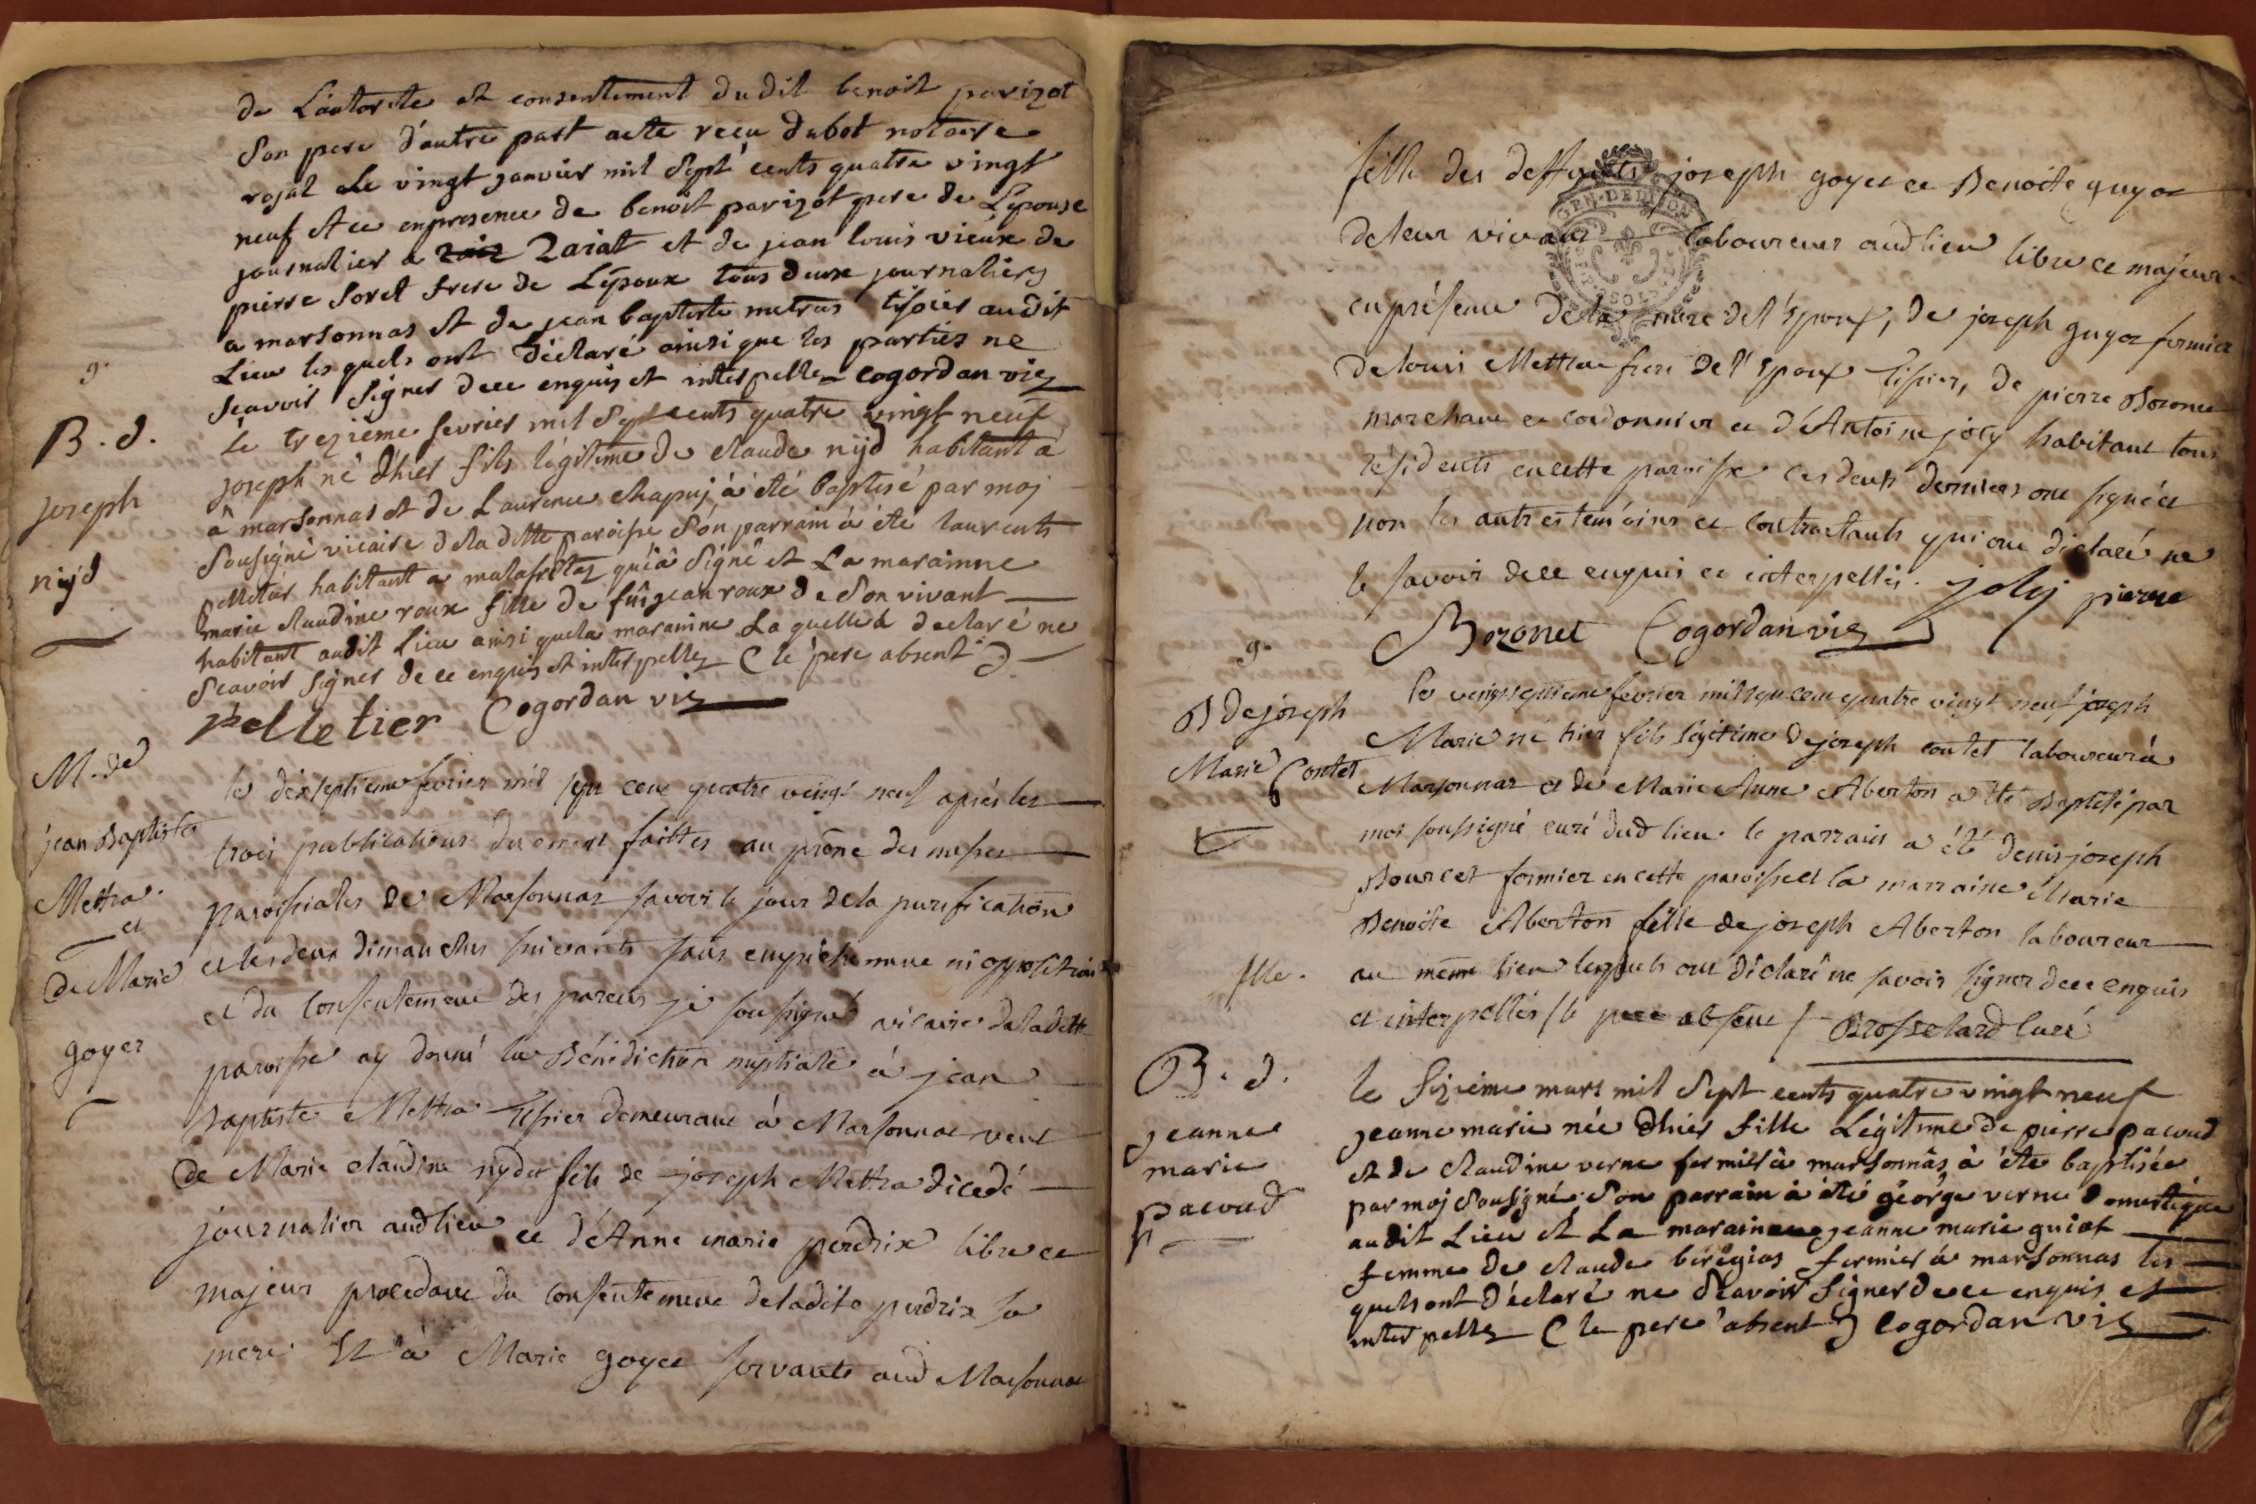 de L'autorite et consentement dudit benoit parizot
son pere d'autre part acte reçu dubot notaire
royal Le vingt janvier mil Sept cents quatre vingt
neuf et ce en presence de benoit parizot pere de L'epouse
journalier a Zaiat et de jean louis vieux de
pierre Soret frere de L'epoux tous deux journaliers
a marsonnas et de jean baptiste metras tissier audit
Lieu lesquels ont déclaré ainsi que les parties ne
scavoir signer de ce enquis et interpellez Cogordan vic
g.
B. d.
joseph
nyd
Le trezieme fevrier mil Sept cents quatre vingt neuf
joseph né d'hier fils légitime de claude nyd habitant à
à marsonnas et de Laurence chapuj à été baptisé par moj
Sousigné vicaire de la ditte paroisse Son parrain à été laurents
pelletier habitant a malafretaz qui à Signé et La maraine
marie claudine roux fille de fû jean roux de Son vivant
habitant audit Lieu ainsi que la maraine La quelle à declaré ne
Scavoir Signer de ce enquis et interpellez ( le pere absent )
pelletier Cogordan vic
M. de
jean Baptiste
Mettra
et
de Marie
goyet
le dixseptieme fevrier mil sept cent quatre vingt neuf après les
trois publications duement faittes au prône des messes
paroissiales de Marsonnas savoir le jour de la purification
et les deux dimanches suivants sans empêchement ni opposition
et du consentement des parens je soussigné vicaire de la ditte
paroisse ay donné la Bénédiction nuptiale à jean
Baptiste Mettra Tissier demeurant à Marsonnas veuf
de Marie claudine nyder fils de joseph Mettra décédé
journalier aud lieu et d'Anne marie perdrix libre et
majeur procedant du consentement de ladite perdrix sa
mere Et à Marie goyet servante aud Marsonnas
fille des deffunts joseph goyet et Benoite guyot
de leur vivant laboureurs aud lieu libre et majeure
en présence de la mere de l'Epoux, de joseph guyot fermier
de louis Mettra frere de l'Epoux Tissier, de pierre Bozonet
marchand et cordonnier et d'Antoine joly habitant tous
résidents en cette paroisse les deux derniers ont signé et
non les autres temoins et contractants qui ont déclaré ne
le savoir de ce enquis et interpellés. joly pierre
Bozonet Cogordan vic
g.
B de joseph
Marie Contet
le vingt fevrier mil sept cent quatre vingt neuf joseph
Marie né hier fils légitime de joseph contet laboureur à
Marsonnas et de Marie Anne Aberton a été Baptisé par
moi soussigné curé dud lieu le parrain a été denis joseph
Bourcet fermier en cette paroisse et la marraine Marie
Benoite Aberton fille de joseph Aberton laboureur
au même lieu lesquels ont déclaré ne savoir signer de ce enquis
et interpellés / le pere absent / Brosselard Curé
B. d.
jeanne
marie
pacoud
le sizieme mars mil Sept cents quatre vingt neuf
jeanne marie née d'hier fille Légitime de pierre pacoud
et de claudine verne fermier à marsonnas à été baptisée
par moj Sousigné Son parrain à été george verne domestique
audit Lieu et La maraine jeanne marie guiot
femme de claude béregias fermier à marsonnas les
quels ont déclaré ne Scavoir Signer de ce enquis et
interpellez ( le pere absent ) Cogordan vic